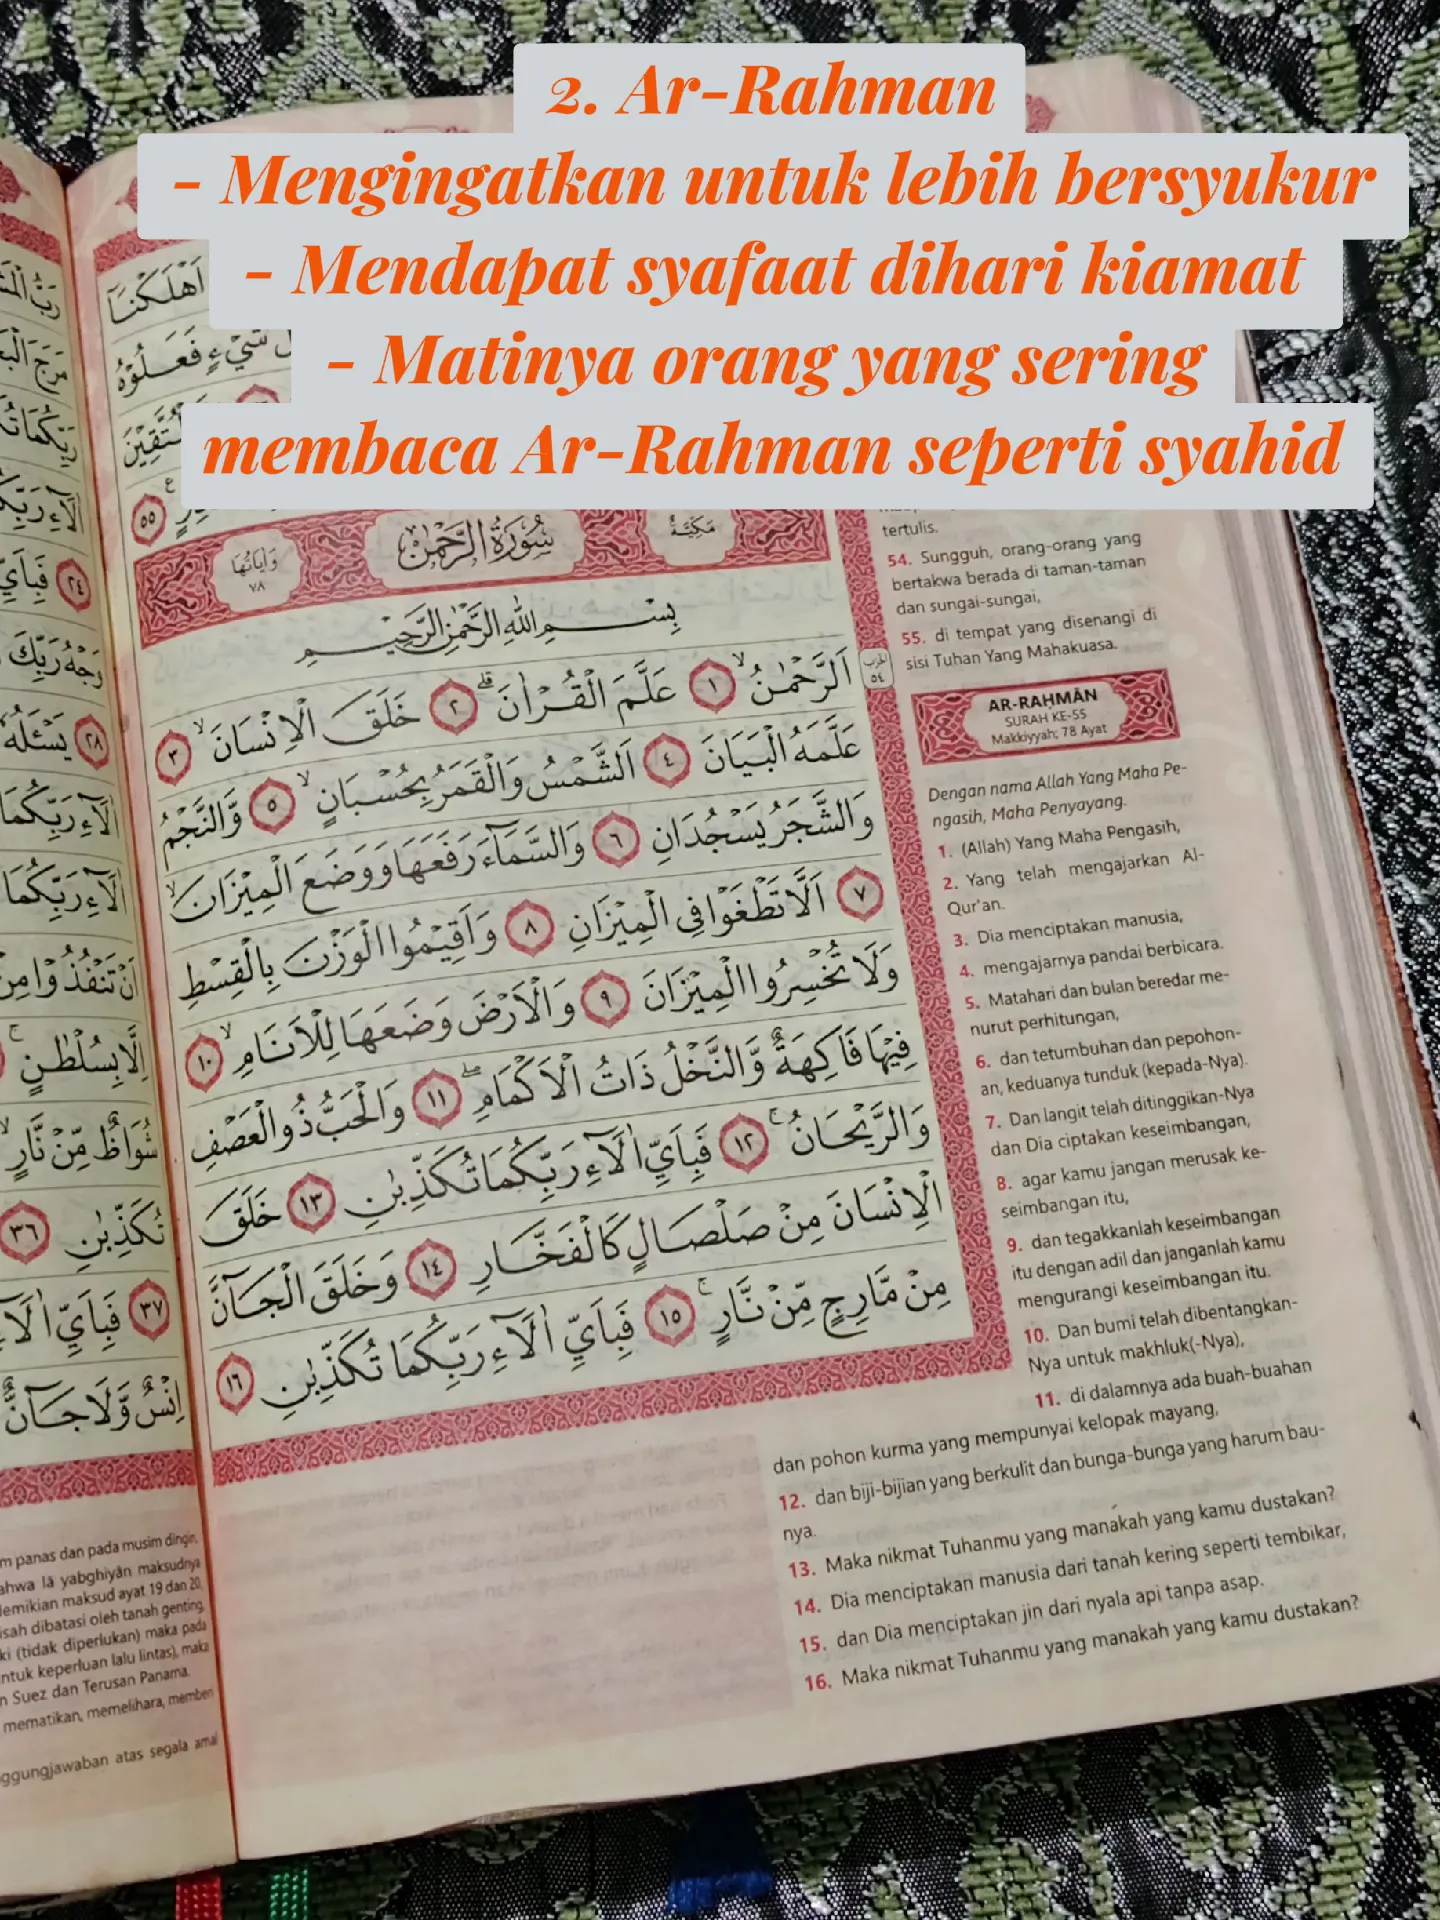 2. Ar-Rahman
- Mengingatkan untuk lebih bersyukur
- Mendapat syafaat dihari kiamat
- Matinya orang yang sering
membaca Ar-Rahman seperti syahid
اَهْلَكْنَآ
شَيْءٍ فَعَلُوْهُ
٥٥
سُوْرَةُ الرَّحْمٰنِ
مَكِّيَّةٌ
وَاٰيَاتُهَا
٧٨
بِسْمِ اللّٰهِ الرَّحْمٰنِ الرَّحِيْمِ
اَلرَّحْمٰنُۙ ١ عَلَّمَ الْقُرْاٰنَۗ ٢ خَلَقَ الْاِنْسَانَۙ ٣
عَلَّمَهُ الْبَيَانَ ٤ اَلشَّمْسُ وَالْقَمَرُ بِحُسْبَانٍۙ ٥ وَّالنَّجْمُ
وَالشَّجَرُ يَسْجُدَانِ ٦ وَالسَّمَاۤءَ رَفَعَهَا وَوَضَعَ الْمِيْزَانَۙ
٧ اَلَّا تَطْغَوْا فِى الْمِيْزَانِ ٨ وَاَقِيْمُوا الْوَزْنَ بِالْقِسْطِ
وَلَا تُخْسِرُوا الْمِيْزَانَ ٩ وَالْاَرْضَ وَضَعَهَا لِلْاَنَامِۙ ١٠
فِيْهَا فَاكِهَةٌ وَّالنَّخْلُ ذَاتُ الْاَكْمَامِۖ ١١ وَالْحَبُّ ذُو الْعَصْفِ
وَالرَّيْحَانُۚ ١٢ فَبِاَيِّ اٰلَاۤءِ رَبِّكُمَا تُكَذِّبٰنِ ١٣ خَلَقَ
الْاِنْسَانَ مِنْ صَلْصَالٍ كَالْفَخَّارِ ١٤ وَخَلَقَ الْجَاۤنَّ
مِنْ مَّارِجٍ مِّنْ نَّارٍۚ ١٥ فَبِاَيِّ اٰلَاۤءِ رَبِّكُمَا تُكَذِّبٰنِ ١٦
الحزب
٥٤
tertulis.
54. Sungguh, orang-orang yang
bertakwa berada di taman-taman
dan sungai-sungai,
55. di tempat yang disenangi di
sisi Tuhan Yang Mahakuasa.
AR-RAḤMĀN
SURAH KE-55
Makkiyyah; 78 Ayat
Dengan nama Allah Yang Maha Pe-
ngasih, Maha Penyayang.
1. (Allah) Yang Maha Pengasih,
2. Yang telah mengajarkan Al-
Qur'an.
3. Dia menciptakan manusia,
4. mengajarnya pandai berbicara.
5. Matahari dan bulan beredar me-
nurut perhitungan,
6. dan tetumbuhan dan pepohon-
an, keduanya tunduk (kepada-Nya).
7. Dan langit telah ditinggikan-Nya
dan Dia ciptakan keseimbangan,
8. agar kamu jangan merusak ke-
seimbangan itu,
9. dan tegakkanlah keseimbangan
itu dengan adil dan janganlah kamu
mengurangi keseimbangan itu.
10. Dan bumi telah dibentangkan-
Nya untuk makhluk(-Nya),
11. di dalamnya ada buah-buahan
dan pohon kurma yang mempunyai kelopak mayang,
12. dan biji-bijian yang berkulit dan bunga-bunga yang harum bau-
nya.
13. Maka nikmat Tuhanmu yang manakah yang kamu dustakan?
14. Dia menciptakan manusia dari tanah kering seperti tembikar,
15. dan Dia menciptakan jin dari nyala api tanpa asap.
16. Maka nikmat Tuhanmu yang manakah yang kamu dustakan?
٢٤
وَجْهُ رَبِّكَ
٢٨ يَسْـَٔلُهٗ
اَنْ تَنْفُذُوْا مِنْ
اِلَّا بِسُلْطٰنٍۚ
شُوَاظٌ مِّنْ نَّارٍۙ
تُكَذِّبٰنِ ٣٦
٣٧ فَبِاَيِّ اٰلَاۤءِ
اِنْسٌ وَّلَا جَاۤنٌّۚ
panas dan pada musim dingin.
lā yabghiyān maksudnya
maksud ayat 19 dan 20,
dibatasi oleh tanah genting,
(tidak diperlukan) maka pada
keperluan lalu lintas), maka
Suez dan Terusan Panama.
mematikan, memelihara, memberi
atas segala amal